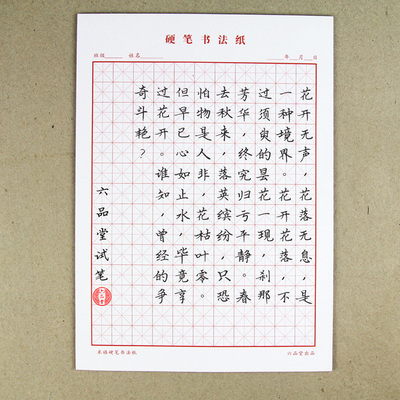 硬笔书法纸
班级 姓名 年 月 日
花开无声，花落无息，是
一种境界。花开花落，不
过须臾的昙花一现，刹那
芳华，终究归亏平静。春
去秋来，落英缤纷，只恐
怕物是人非，花枯叶零。
但早已心如止水，毕竟享
过花开。谁知，曾经的争
奇斗艳？
六品堂试笔
米格硬笔书法纸
六品堂出品